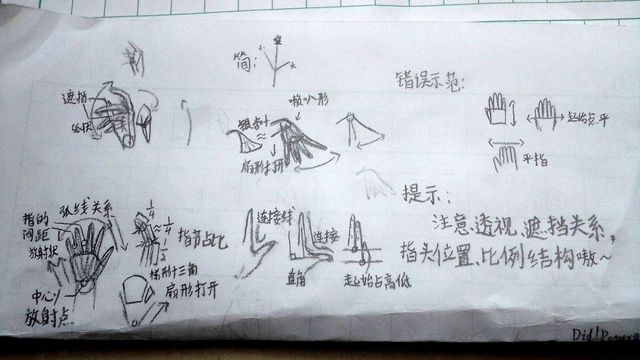 简:
错误示范:
遮挡
弧状
喇叭形
银杏叶≈
扇形打开
起始点平
平指
提示:
注意、透视、遮挡关系,
指头位置、比例结构嗷~
弧线关系
指的
间距
放射状
中心
放射点
1/4
≈1/4
1/2
指节占比
梯形+三角
扇形打开
连接线
连接
直角
起始点高低